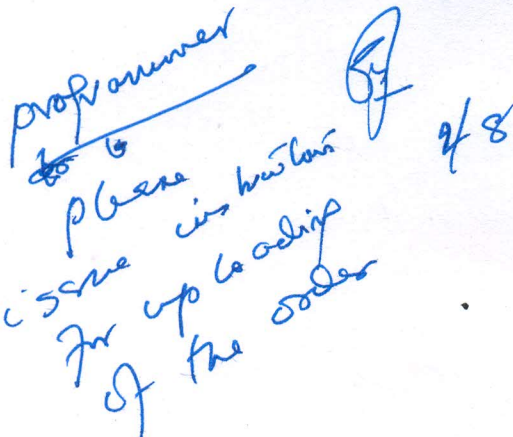 programmer
please
issue instructions
for uploading
of the order